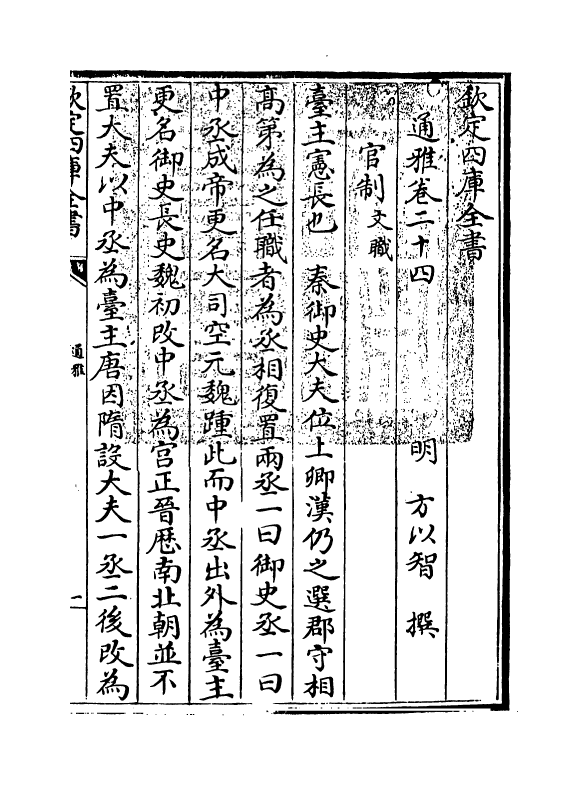 欽定四庫全書
通雅卷二十四
明 方以智 撰
官制文職
臺主憲長也 秦御史大夫位上卿漢仍之選郡守相
高第為之任職者為丞相復置兩丞一曰御史丞一曰
中丞成帝更名大司空元魏踵此而中丞出外為臺主
更名御史長史魏初改中丞為宫正晉歴南北朝並不
置大夫以中丞為臺主唐因隋設大夫一丞二後改為
欽定四庫全書
通雅
一